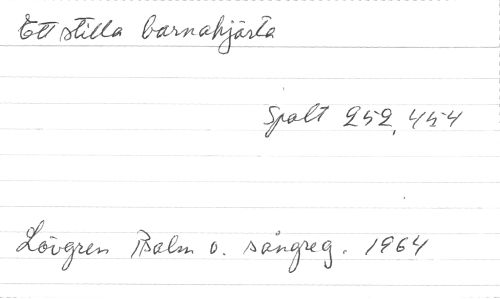 Ett stilla barnahjärta
Spalt 252, 454
Lövgren Psalm o. sångreg. 1964